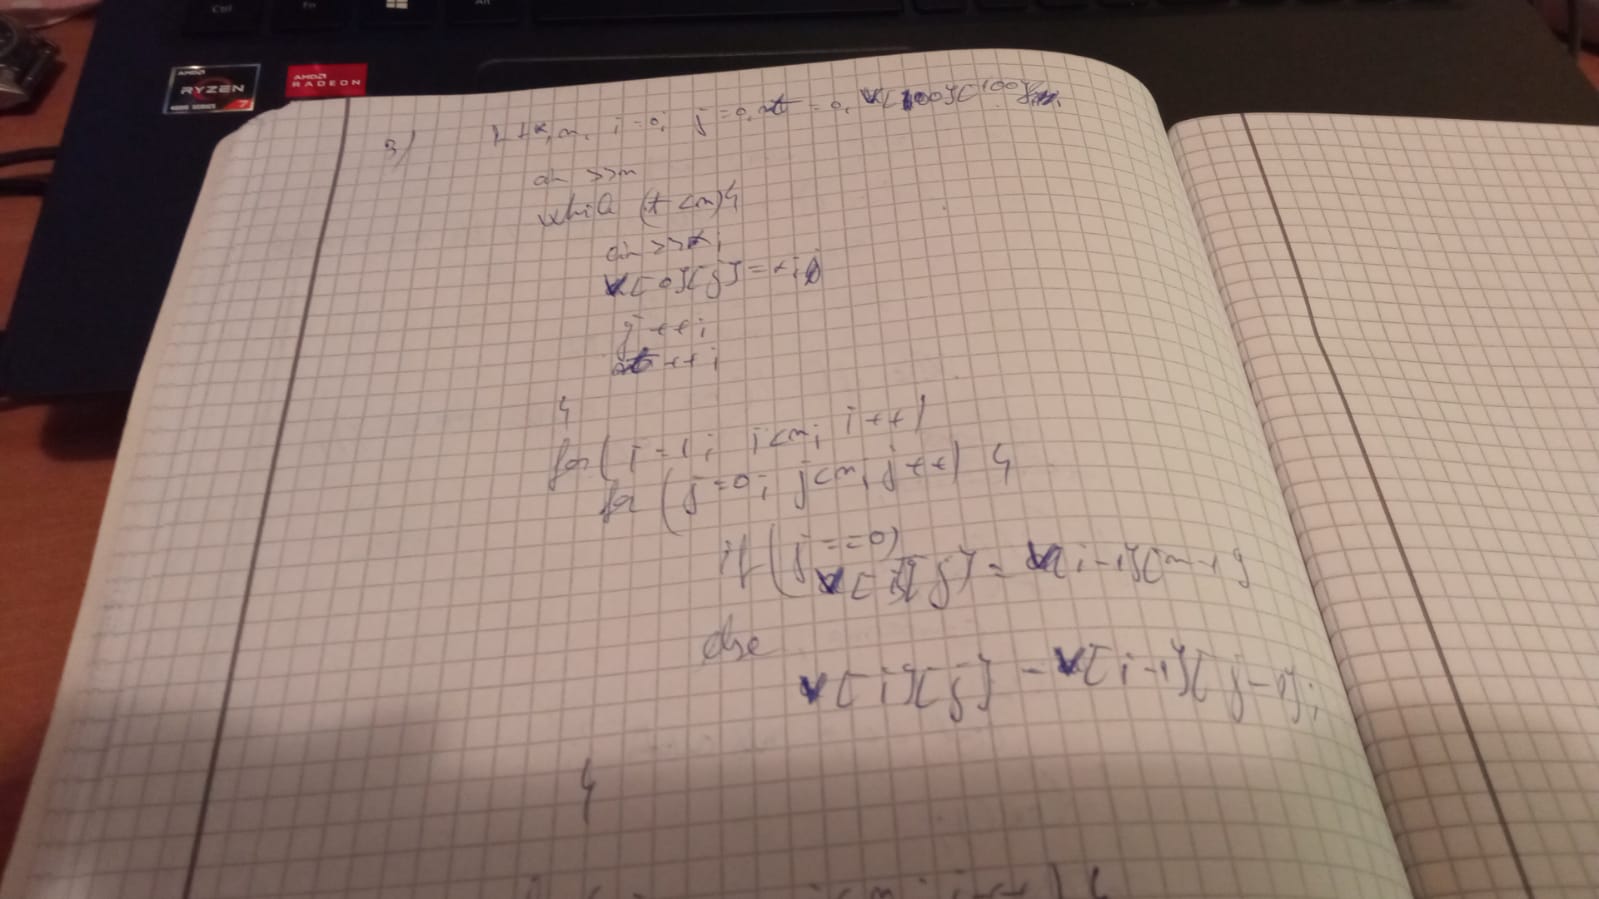 Ctrl
Fn
Alt
AMD
RYZEN
4000 SERIES 7
AMD
RADEON
3) int x, n, i=0, j=0, t=0, v[100][100];
cin >>n
while (t<n){
cin >>x;
v[0][j]=x;
j++;
t++;
}
for(i=1; i<n; i++)
for(j=0; j<n; j++) {
if(j==0)
v[i][j]=v[i-1][n-1]
else
v[i][j]=v[i-1][j-1];
}